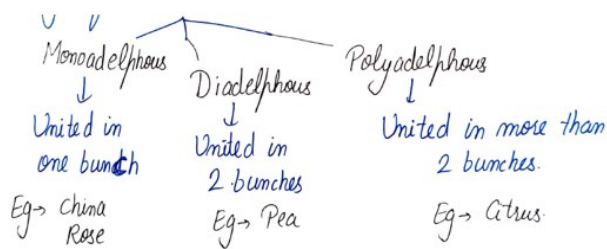 Monoadelphous
United in
one bunch
Eg→ China
Rose
Diadelphous
United in
2 bunches
Eg→ Pea
Polyadelphous
United in more than
2 bunches.
Eg→ Citrus.